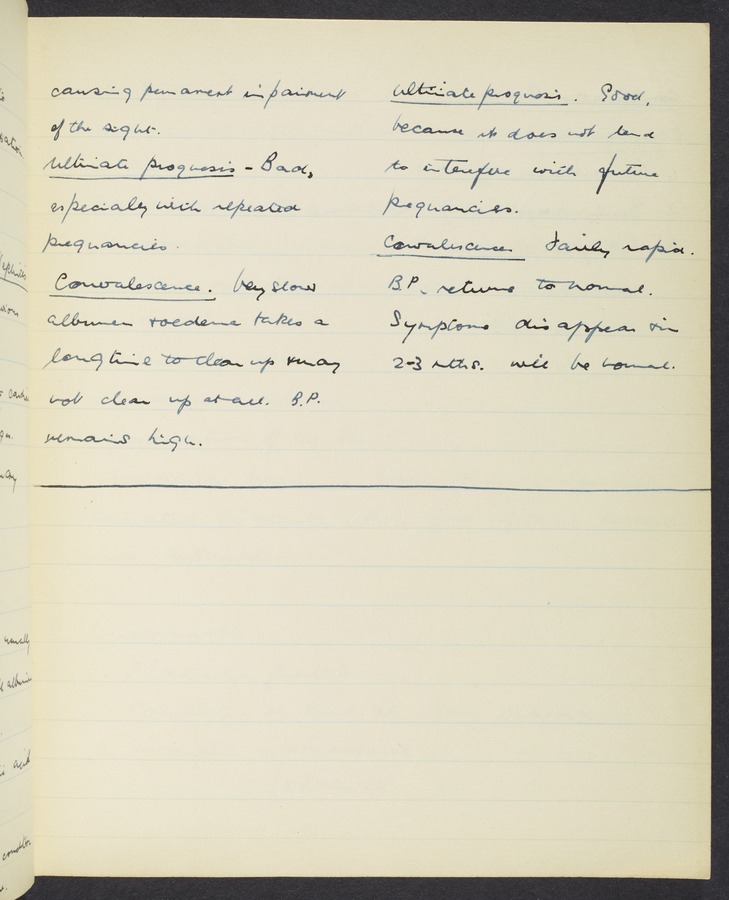 causing permanent impairment
of the sight.
Ultimate prognosis - Bad,
especially with repeated
pregnancies.
Convalescence. Very slow
albumen & oedema takes a
long time to clear up & may
not clear up at all. B.P.
remains high.
Ultimate prognosis. Good,
because it does not tend
to interfere with future
pregnancies.
Convalescence Fairly rapid.
B.P. returns to normal.
Symptoms disappear & in
2-3 mths. will be normal.